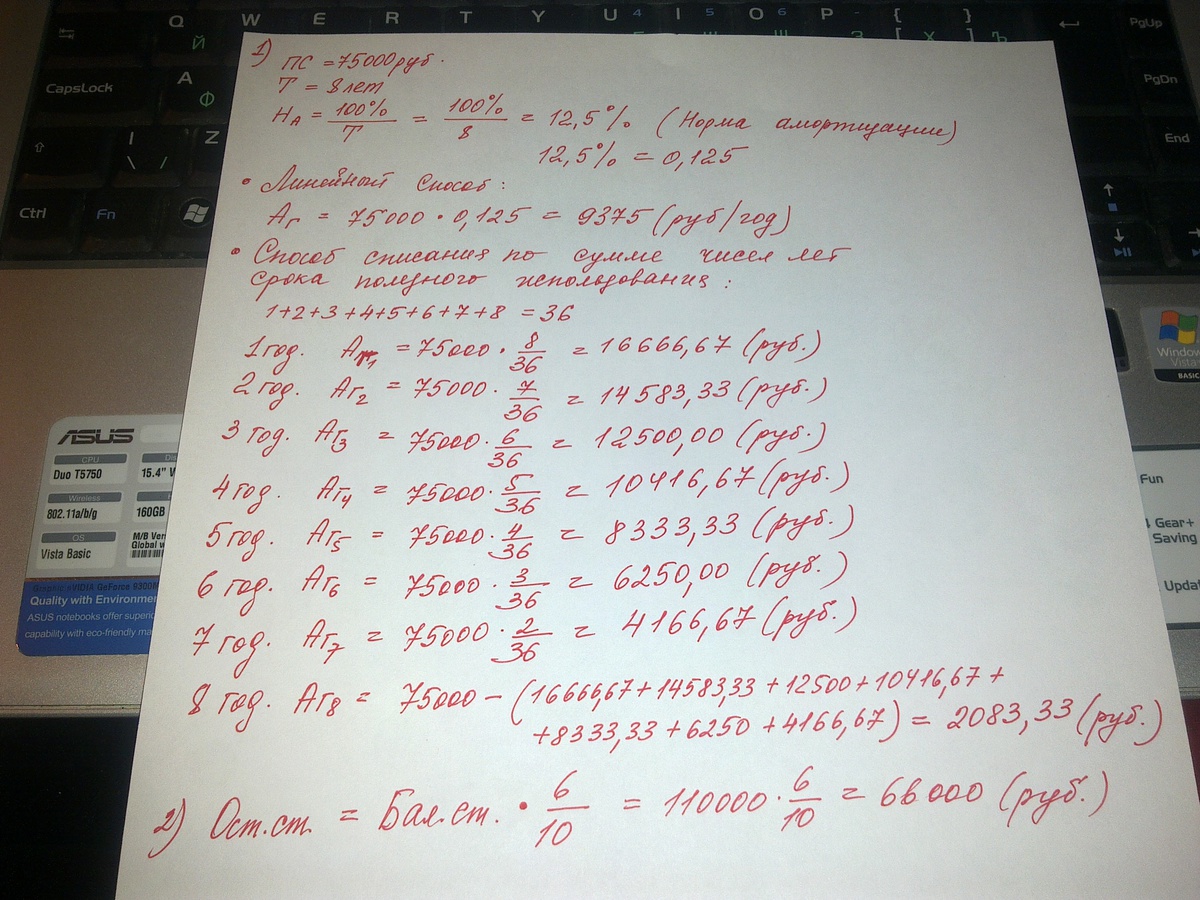 Q W E R T Y U 4 I 5 O 6 P - { }
Й [ Х ] Ъ
PgUp
CapsLock
A
Ф
PgDn
I Z
\ /
End
Ctrl Fn
1) ПС = 75000 руб.
T = 8 лет
НА = 100% / T = 100% / 8 = 12,5% (Норма амортизации)
12,5% = 0,125
• Линейный способ:
Аг = 75000 · 0,125 = 9375 (руб/год)
• Способ списания по сумме чисел лет
срока полезного использования:
1+2+3+4+5+6+7+8 = 36
1 год. Аг1 = 75000 · 8/36 = 16666,67 (руб.)
2 год. Аг2 = 75000 · 7/36 = 14583,33 (руб.)
3 год. Аг3 = 75000 · 6/36 = 12500,00 (руб.)
4 год. Аг4 = 75000 · 5/36 = 10416,67 (руб.)
5 год. Аг5 = 75000 · 4/36 = 8333,33 (руб.)
6 год. Аг6 = 75000 · 3/36 = 6250,00 (руб.)
7 год. Аг7 = 75000 · 2/36 = 4166,67 (руб.)
8 год. Аг8 = 75000 – (16666,67 + 14583,33 + 12500 + 10416,67 +
+ 8333,33 + 6250 + 4166,67) = 2083,33 (руб.)
2) Ост.ст. = Бал.ст. · 6/10 = 110000 · 6/10 = 66000 (руб.)
ASUS
CPU
Duo T5750 15.4" W
Wireless
802.11a/b/g 160GB
OS
Vista Basic
M/B Ver
Global w
Quality with Environme
ASUS notebooks offer super
capability with eco-friendly ma
Window
Vista
BASIC
Fun
Gear+
Saving
Updat